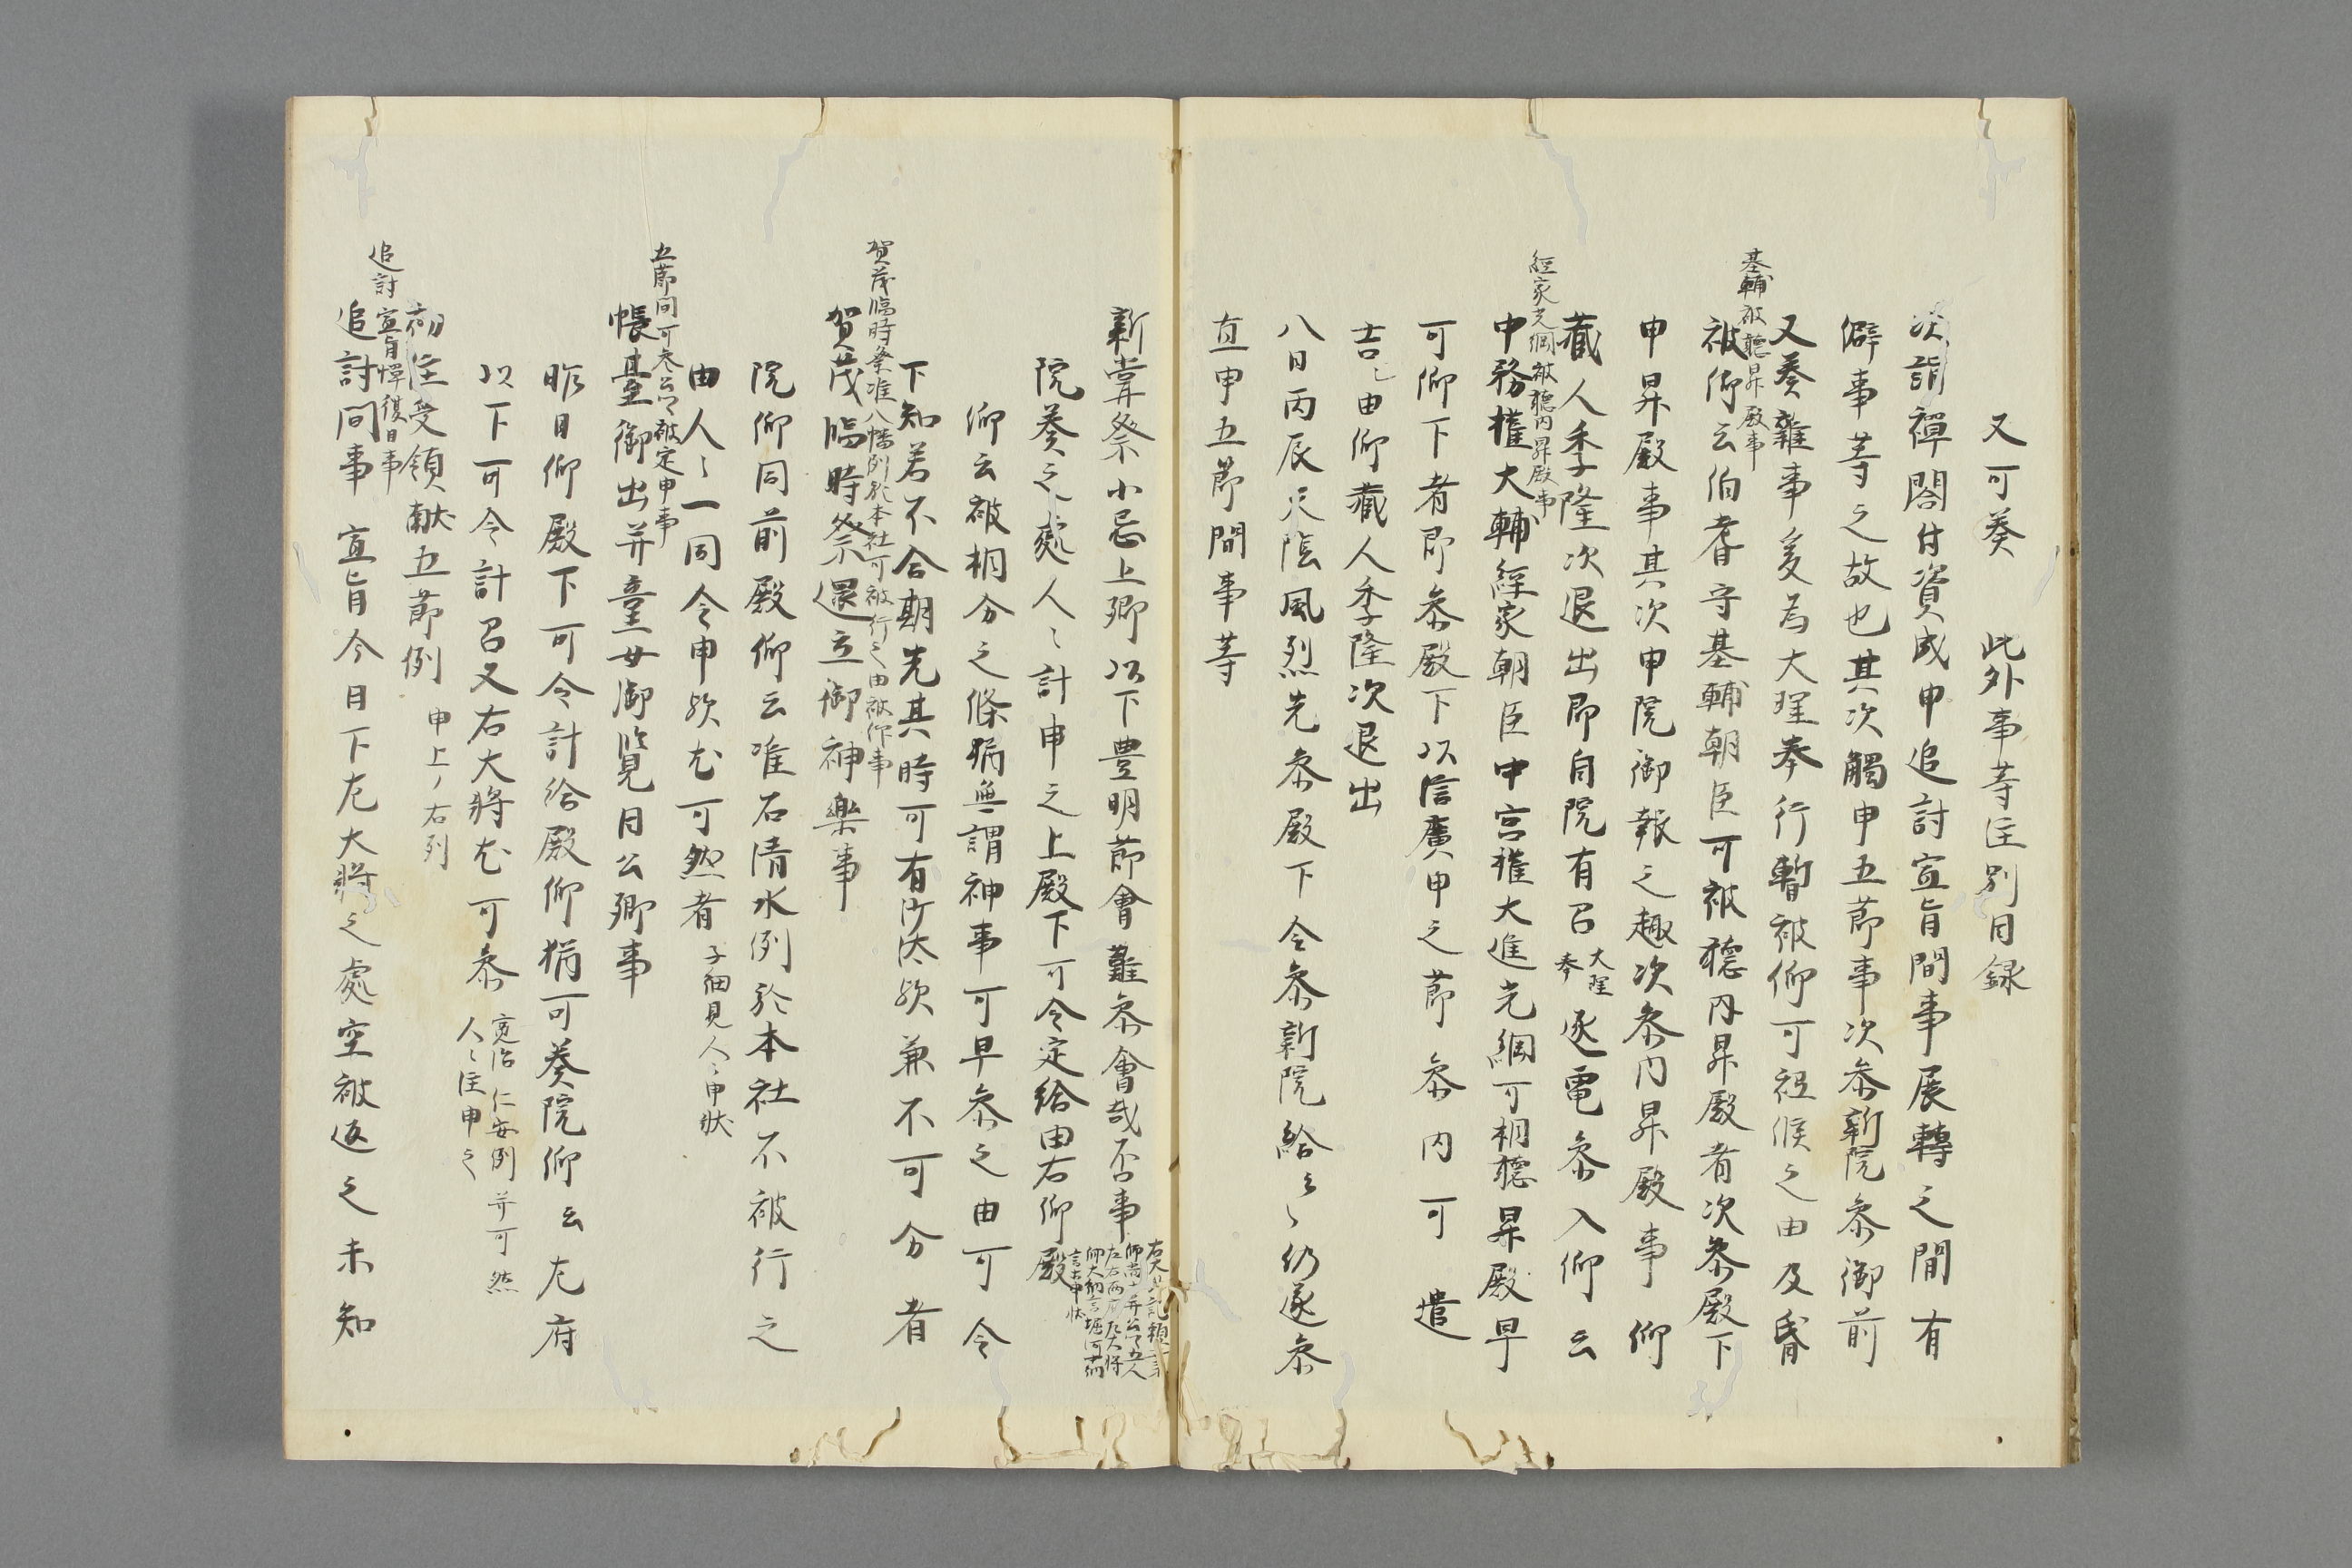 又可奏　此外事等注別目録
次詣禅閤付資成申追討宣旨間事展轉之間有
僻事等之故也其次觸申五節事次参新院参御前
又奏雜事多为大理奉行暫被仰可祗候之由及昏
基輔被聴昇殿事
被仰云伯耆守基輔朝臣可被聴内昇殿者次参殿下
申昇殿事其次申院御報之趣次参内昇殿事仰
藏人季隆次退出即自院有召大理奉逐電参入仰云
經家光綱被聴内昇殿事
中務権大輔經家朝臣中宮権大進光綱可相聴昇殿早
可仰下者即参殿下以信廣申之節参内可遣
吉々由仰藏人季隆次退出
八日丙辰天陰風烈先参殿下令参新院給々仍逐参
直申五節間事等
新甞祭小忌上卿以下豊明節會難参會哉否事
院奏之處人々計申之上殿下可令定給由右仰殿
仰云被相分之條猶無謂神事可早参之由可令
下知若不合期先其時可有沙汰歟兼不可分者
賀茂臨時祭准八幡例於本社可被行之由被仰事
賀茂臨時祭還立御神樂事
院仰同前殿仰云准石清水例於本社不被行之
由人々一同令申歟尤可然者子細見人々申状
五節間可参公卿被定申事
帳臺御出并童女御覧日公卿事
昨日仰殿下可令計給殿仰猶可奏院仰云左府
以下可令計召又右大將尤可参寛治仁安例并可然
人々注申之
初任受領献五節例　申上了右列
追討宣旨憚復日事
追討間事　宣旨今日下左大將之處空被返之未知